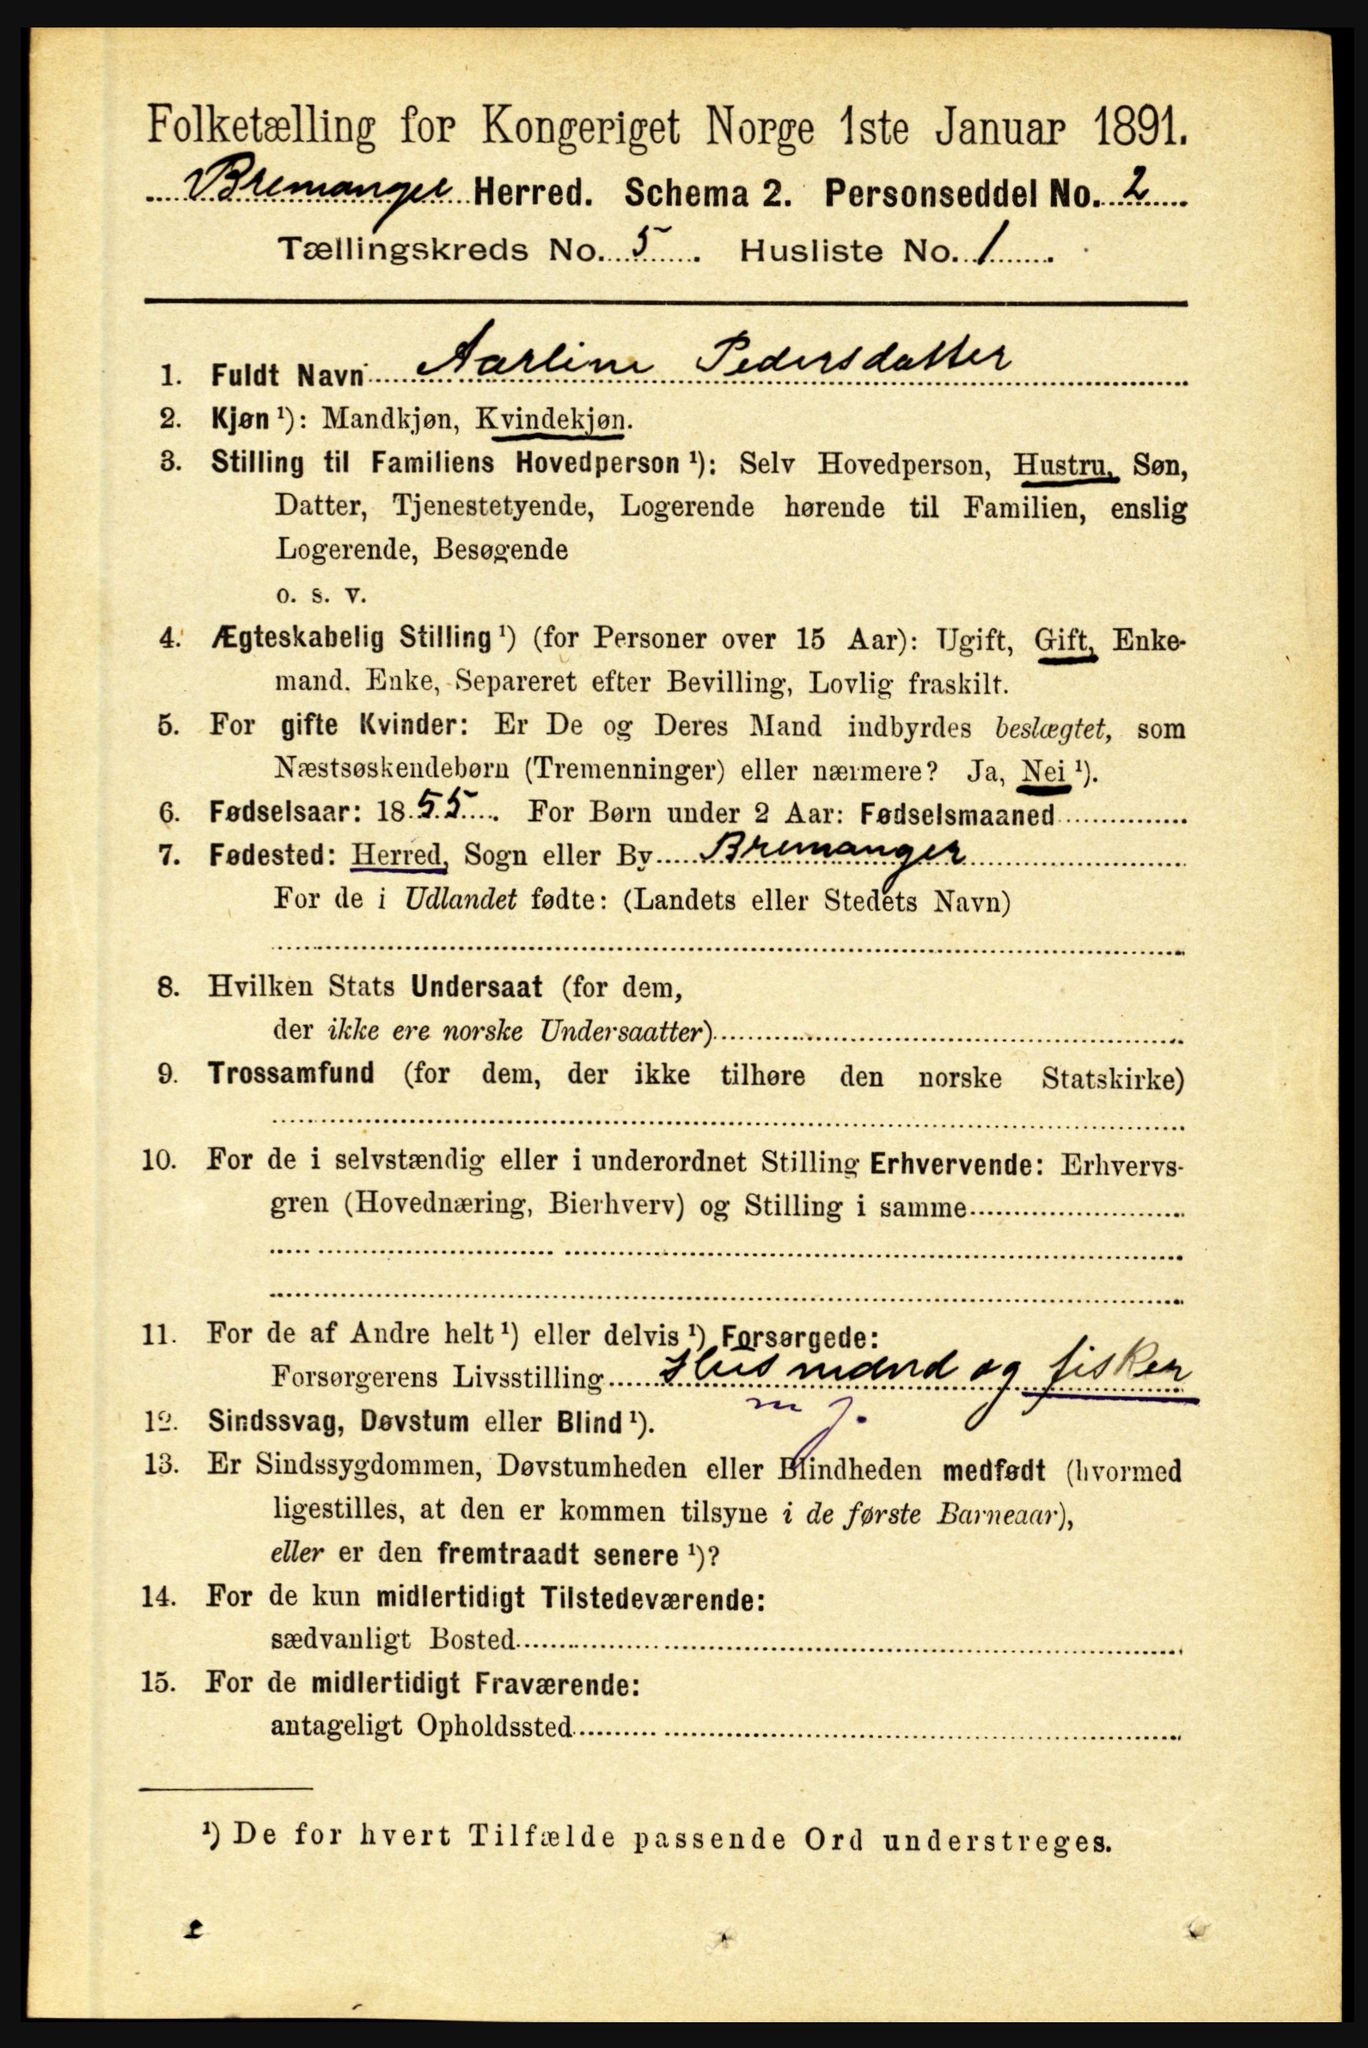 Folketælling for Kongeriget Norge 1ste Januar 1891.
Bremanger Herred. Schema 2. Personseddel No. 2
Tællingskreds No. 5. Husliste No. 1
1. Fuldt Navn Aarline Pedersdatter
2. Kjøn ¹): Mandkjøn, Kvindekjøn.
3. Stilling til Familiens Hovedperson ¹): Selv Hovedperson, Hustru, Søn,
Datter, Tjenestetyende, Logerende hørende til Familien, enslig
Logerende, Besøgende
o. s. v.
4. Ægteskabelig Stilling ¹) (for Personer over 15 Aar): Ugift, Gift, Enke-
mand, Enke, Separeret efter Bevilling, Lovlig fraskilt.
5. For gifte Kvinder: Er De og Deres Mand indbyrdes beslægtet, som
Næstsøskendebørn (Tremenninger) eller nærmere? Ja, Nei ¹).
6. Fødselsaar: 1855. For Børn under 2 Aar: Fødselsmaaned
7. Fødested: Herred, Sogn eller By Bremanger
For de i Udlandet fødte: (Landets eller Stedets Navn)
8. Hvilken Stats Undersaat (for dem,
der ikke ere norske Undersaatter)
9. Trossamfund (for dem, der ikke tilhøre den norske Statskirke)
10. For de i selvstændig eller i underordnet Stilling Erhvervende: Erhvervs-
gren (Hovednæring, Bierhverv) og Stilling i samme
11. For de af Andre helt ¹) eller delvis ¹) Forsørgede:
Forsørgerens Livsstilling Husmand og fisker
m j.
12. Sindssvag, Døvstum eller Blind ¹).
13. Er Sindssygdommen, Døvstumheden eller Blindheden medfødt (hvormed
ligestilles, at den er kommen tilsyne i de første Barneaar),
eller er den fremtraadt senere ¹)?
14. For de kun midlertidigt Tilstedeværende:
sædvanligt Bosted
15. For de midlertidigt Fraværende:
antageligt Opholdssted
¹) De for hvert Tilfælde passende Ord understreges.